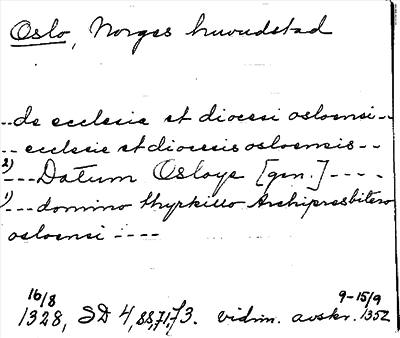 Oslo, Norges huvudstad
--de ecclesie et diocesi osloensi--
-- ecclesie et diocesis osloensis --
2) --- Datum Osloye [gen.] ----
1) --- domino thyrkillo Archipresbitero
osloensi ----
16/8 9-15/9
1328, SD 4, 88,71,73. vidim. avskr. 1352